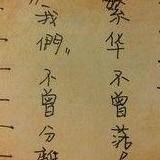 繁华不曾落
“我們”不曾分離